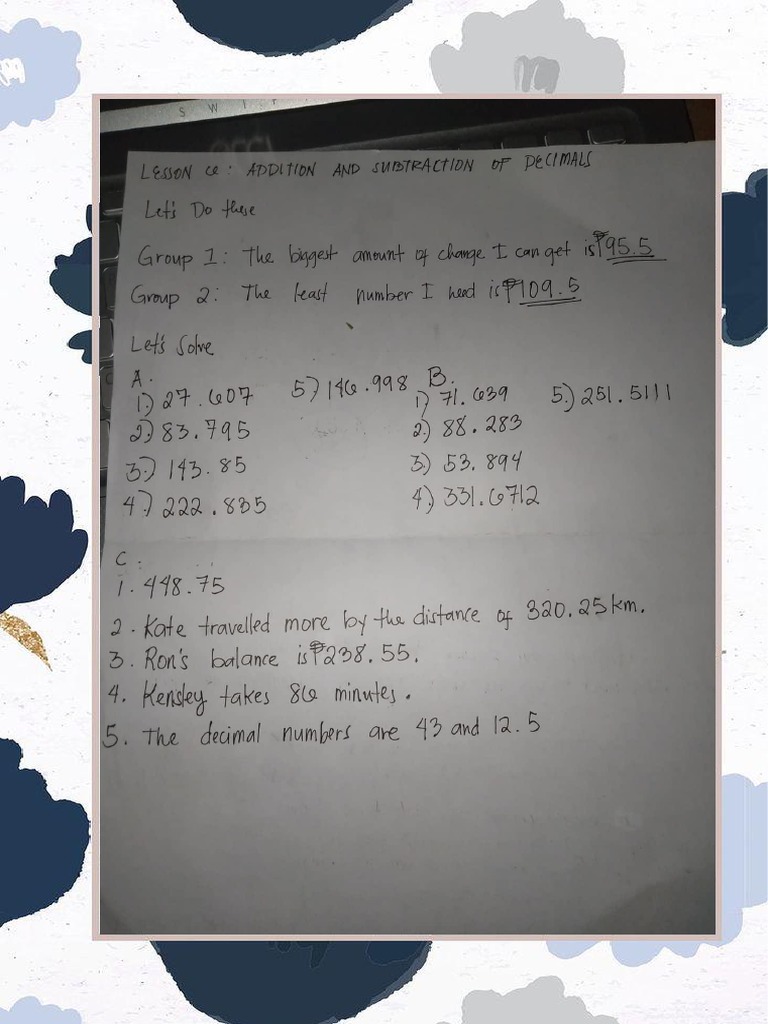 LESSON 6: ADDITION AND SUBTRACTION OF DECIMALS
Let's Do these
Group 1: The biggest amount of change I can get is ₱95.5
Group 2: The least number I need is ₱109.5
Let's Solve
A.
1.) 27.607
2.) 83.795
3.) 143.85
4.) 222.835
5.) 146.998
B.
1.) 71.639
2.) 88.283
3.) 53.894
4.) 331.6712
5.) 251.5111
C.
1. 448.75
2. Kate travelled more by the distance of 320.25 km.
3. Ron's balance is ₱238.55.
4. Kensley takes 86 minutes.
5. The decimal numbers are 43 and 12.5